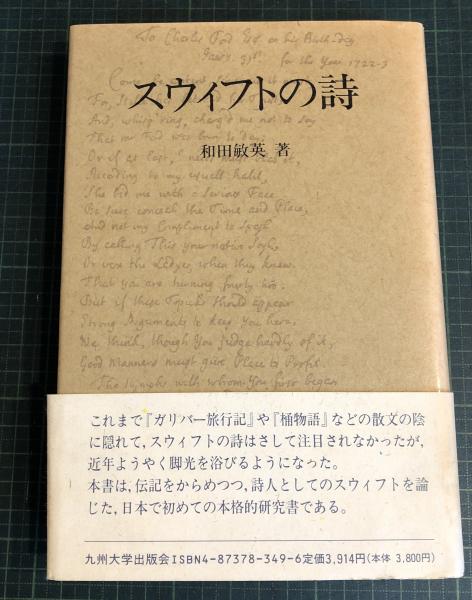 To Charles Ford Esqr. on his Birth-day
Jan'ry. 31st. for the Year 1722-3
スウィフトの詩
和田敏英 著
And, whisp'ring, charg'd me not to say
That Mr Ford was born to day:
According to my usuall habit,
She bid me with a Serious Face
Be sure conceal the Time and Place,
And not my Compliment to spoyl
By calling This your native Soyl;
Or vex the Ladyes, when they knew
That you are turning forty two.
But if these Topicks should appear
Strong Arguments to keep You here,
We think, though You judge hardly of it,
Good Manners must give Place to Profit.
The Nymphs with whom You first began
これまで『ガリバー旅行記』や『桶物語』などの散文の陰
に隠れて,スウィフトの詩はさして注目されなかったが,
近年ようやく脚光を浴びるようになった。
本書は,伝記をからめつつ,詩人としてのスウィフトを論
じた,日本で初めての本格的研究書である。
九州大学出版会ISBN4-87378-349-6定価3,914円(本体 3,800円)